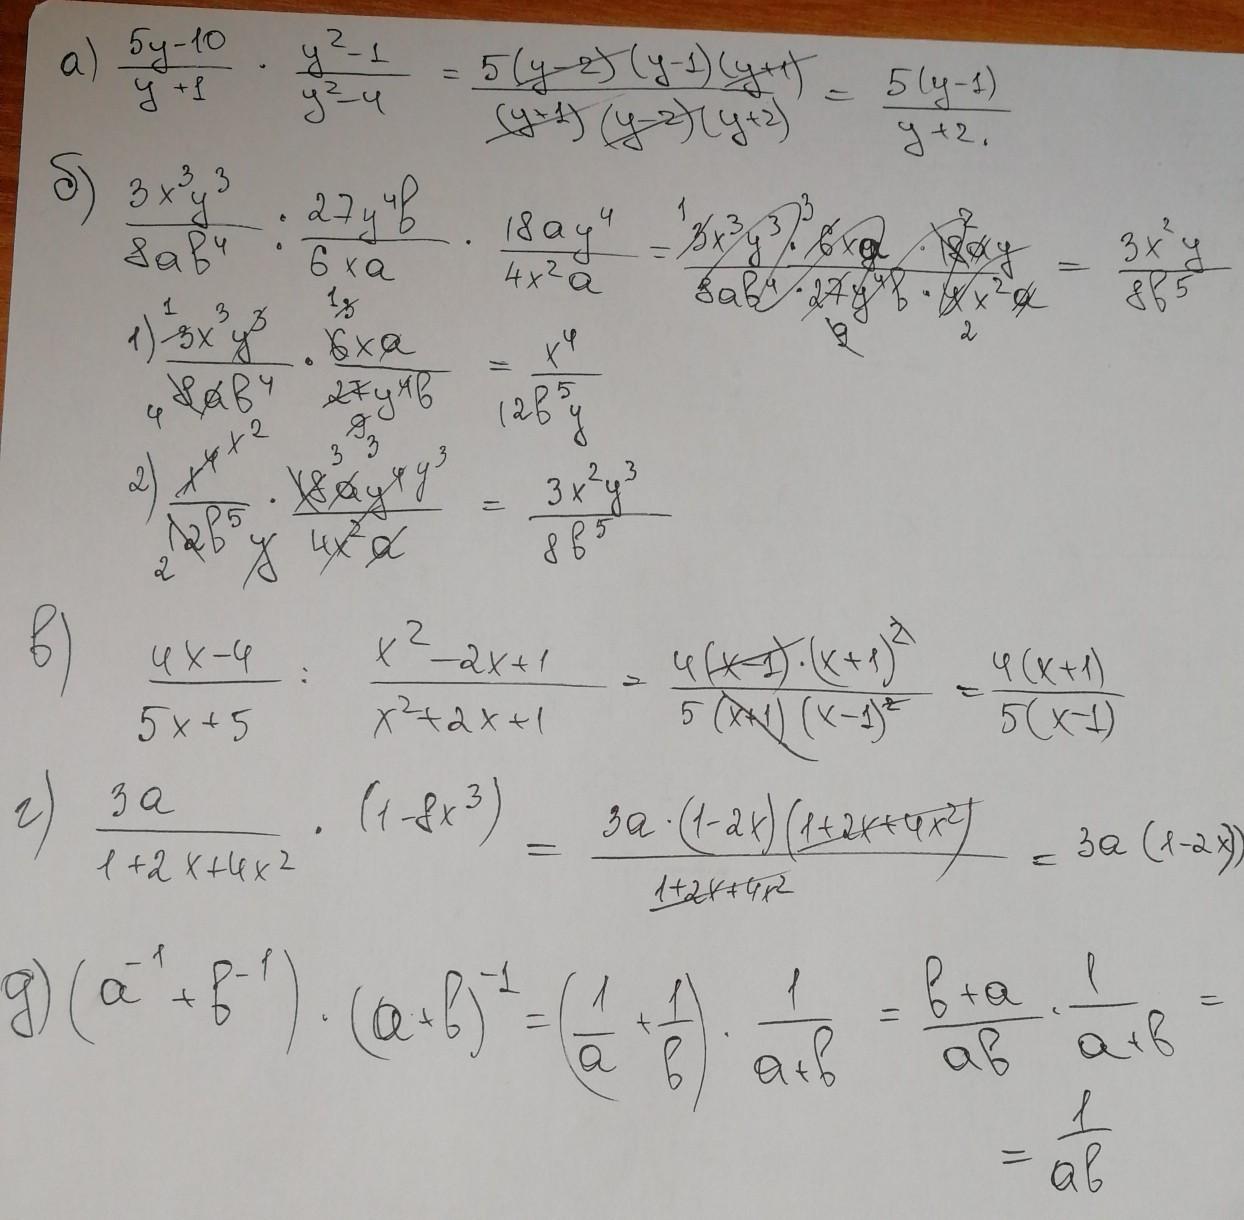 а) (5y-10)/(y+1) · (y²-1)/(y²-4) = 5(y-2)(y-1)(y+1)/((y+1)(y-2)(y+2)) = 5(y-1)/(y+2).
б) 3x³y³/(8ab⁴) : 27y⁴b/(6xa) · 18ay⁴/(4x²a) = 3x³y³·6xa·18ay/(8ab⁴·27y⁴b·4x²a) = 3x²y/(8b⁵)
1) 3x³y³/(8ab⁴) · 6xa/(27y⁴b) = x⁴/(12b⁵y)
2) x⁴/(12b⁵y) · 18ay⁴/(4x²a) = 3x²y³/(8b⁵)
в) (4x-4)/(5x+5) : (x²-2x+1)/(x²+2x+1) = 4(x-1)·(x+1)²/(5(x+1)(x-1)²) = 4(x+1)/(5(x-1))
г) 3a/(1+2x+4x²) · (1-8x³) = 3a·(1-2x)(1+2x+4x²)/(1+2x+4x²) = 3a(1-2x)
д) (a⁻¹+b⁻¹)·(a+b)⁻¹ = (1/a+1/b)·1/(a+b) = (b+a)/(ab)·1/(a+b) =
= 1/(ab)